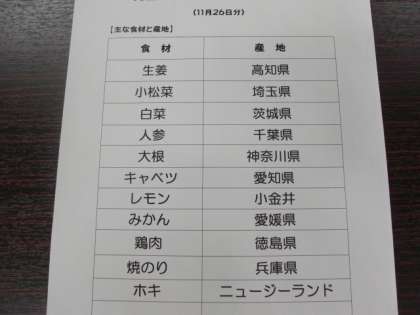 (11月26日分)
【主な食材と産地】
食材 産地
生姜 高知県
小松菜 埼玉県
白菜 茨城県
人参 千葉県
大根 神奈川県
キャベツ 愛知県
レモン 小金井
みかん 愛媛県
鶏肉 徳島県
焼のり 兵庫県
ホキ ニュージーランド